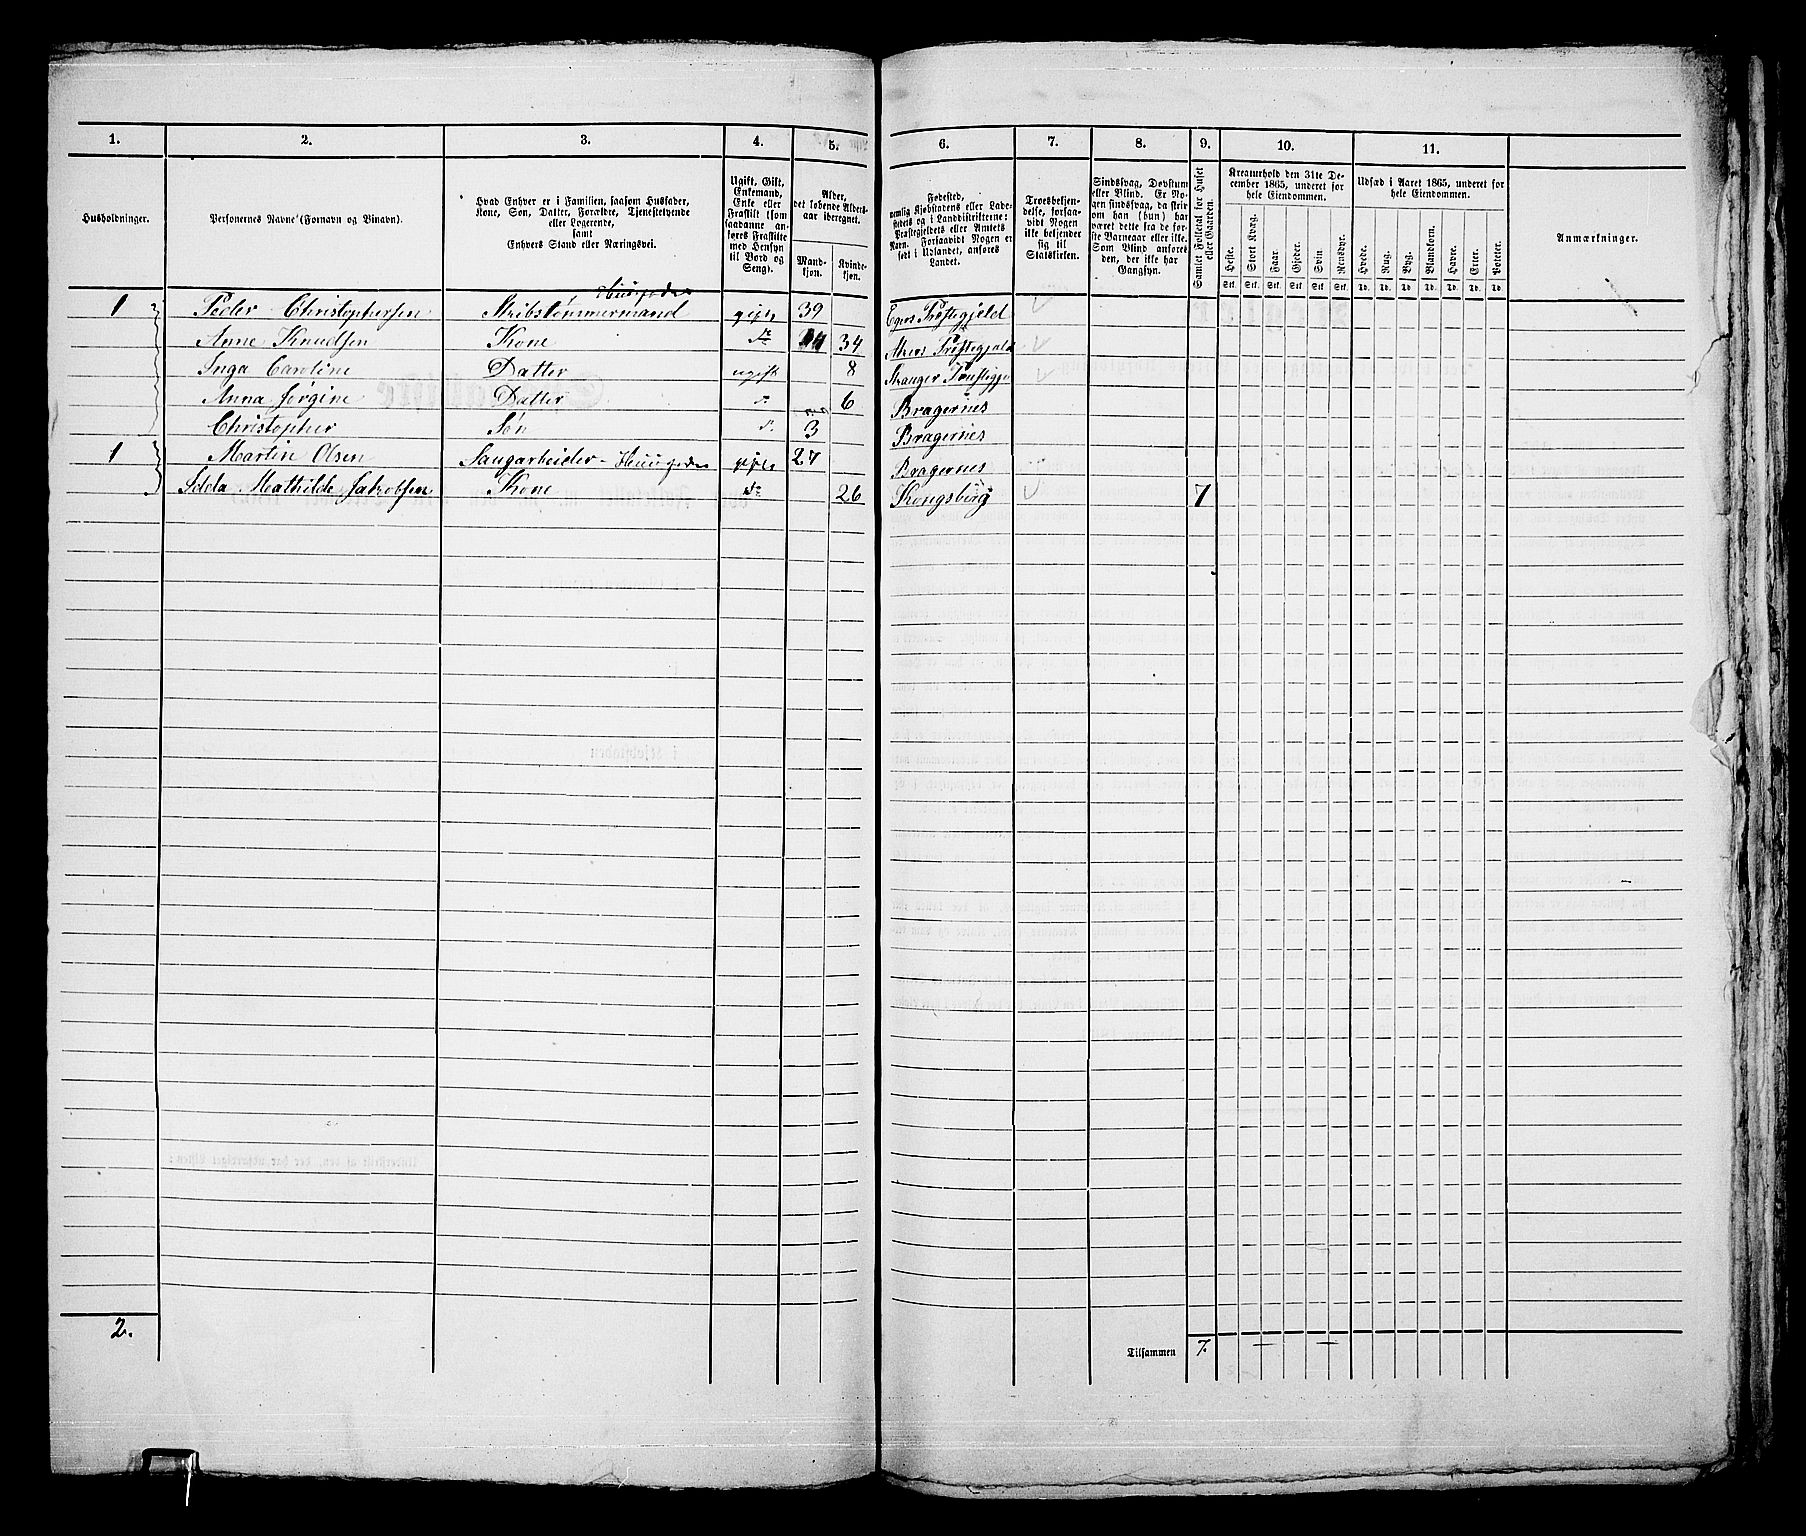 1. 2. 3. 4. 5. 6. 7. 8. 9. 10. 11.
Husholdninger.
Personernes Navne (Fornavn og Binavn).
Hvad Enhver er i Familien, saasom Husfader,
Kone, Søn, Datter, Forældre, Tjenestetyende
eller Logerende,
samt
Enhvers Stand eller Næringsvei.
Ugift, Gift,
Enkemand,
Enke eller
Fraskilt (som
saadanne an-
føres Fraskilte
med Hensyn
til Bord og
Seng).
Alder,
det løbende Alders-
aar iberegnet.
Mand-
kjøn.
Kvinde-
kjøn.
Fødested,
nemlig Kjøbstadens eller Lade-
stedets og i Landdistrikterne:
Præstegjeldets eller Amtets
Navn. Forsaavidt Nogen er
født i Udlandet, anføres
Landet.
Troesbekjen-
delse, forsaa-
vidt Nogen
ikke bekjender
sig til
Statskirken.
Sindssvag, Døvstum
eller Blind. Er No-
gen sindssvag, da skriv
om han (hun) har
været dette fra de før-
ste Barneaar eller ikke.
Som Blind anføres
den, der ikke har
Gangsyn.
Samlet Folketal for Huset
eller Gaarden.
Kreaturhold den 31te De-
cember 1865, underet for
hele Eiendommen.
Heste. Stort Kvæg. Faar. Gjeder. Svin Rensdyr.
Stk. Stk. Stk. Stk. Stk. Stk.
Udsæd i Aaret 1865, underet for
hele Eiendommen.
Hvede. Rug. Byg. Blandkorn. Havre. Erter. Poteter.
Td. Td. Td. Td. Td. Td. Td.
Anmærkninger.
1 Peder Christophersen Skibstømmermand gift 39 Egers Præstegjeld
Anne Knudsen Kone do 34 Præstegjeld
Inga Caroline Datter ugift 8
Anna Jørgine Datter d. 6 Bragernes
Christopher Søn d. 3 Bragernes
1 Martin Olsen Saugarbeider gift 27 Bragernes
Mathilde Jakobsen Kone do 26 Kongsberg 7
2.
Tilsammen 7.